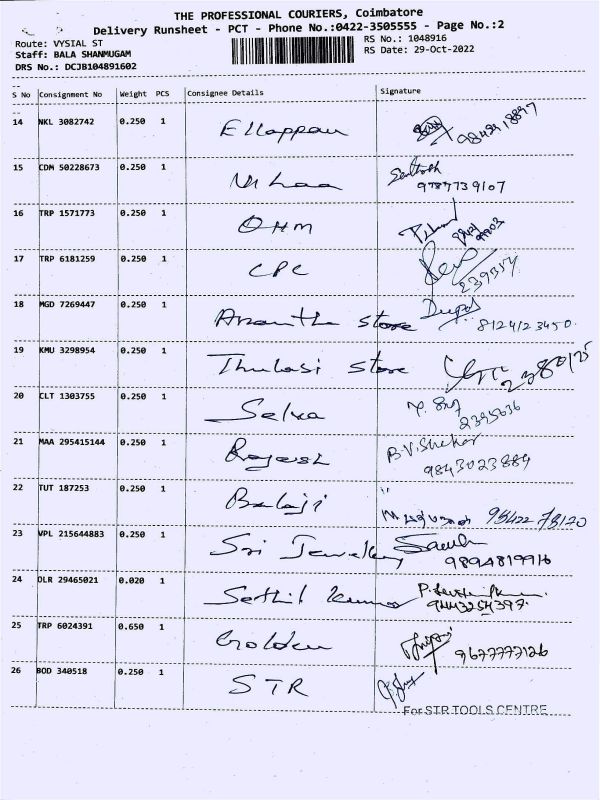 THE PROFESSIONAL COURIERS, Coimbatore
Delivery Runsheet - PCT - Phone No.:0422-3505555 - Page No.:2
Route: VYSIAL ST
RS No.: 1048916
Staff: BALA SHANMUGAM
RS Date: 29-Oct-2022
DRS No.: DCJB104891602
S No Consignment No Weight PCS Consignee Details Signature
14 NKL 3082742 0.250 1 Ellappan
15 CDM 50228673 0.250 1 Santhosh
9787739107
16 TRP 1571773 0.250 1 OHM
17 TRP 6181259 0.250 1 CPC
239354
18 MGD 7269447 0.250 1 Anantha store
8124123450
19 KMU 3298954 0.250 1 Thulasi store 2380125
20 CLT 1303755 0.250 1 Selva
2395636
21 MAA 295415144 0.250 1 Rajesh B.V.Shekar
9843023889
22 TUT 187253 0.250 1 Balaji 98422 78120
23 VPL 215644883 0.250 1 Sri Jewellery
9894819916
24 DLR 29465021 0.020 1 Sethil Kumar
9443254397
25 TRP 6024391 0.650 1 Golden 9677777126
26 BOD 340518 0.250 1 STR
For STR TOOLS CENTRE